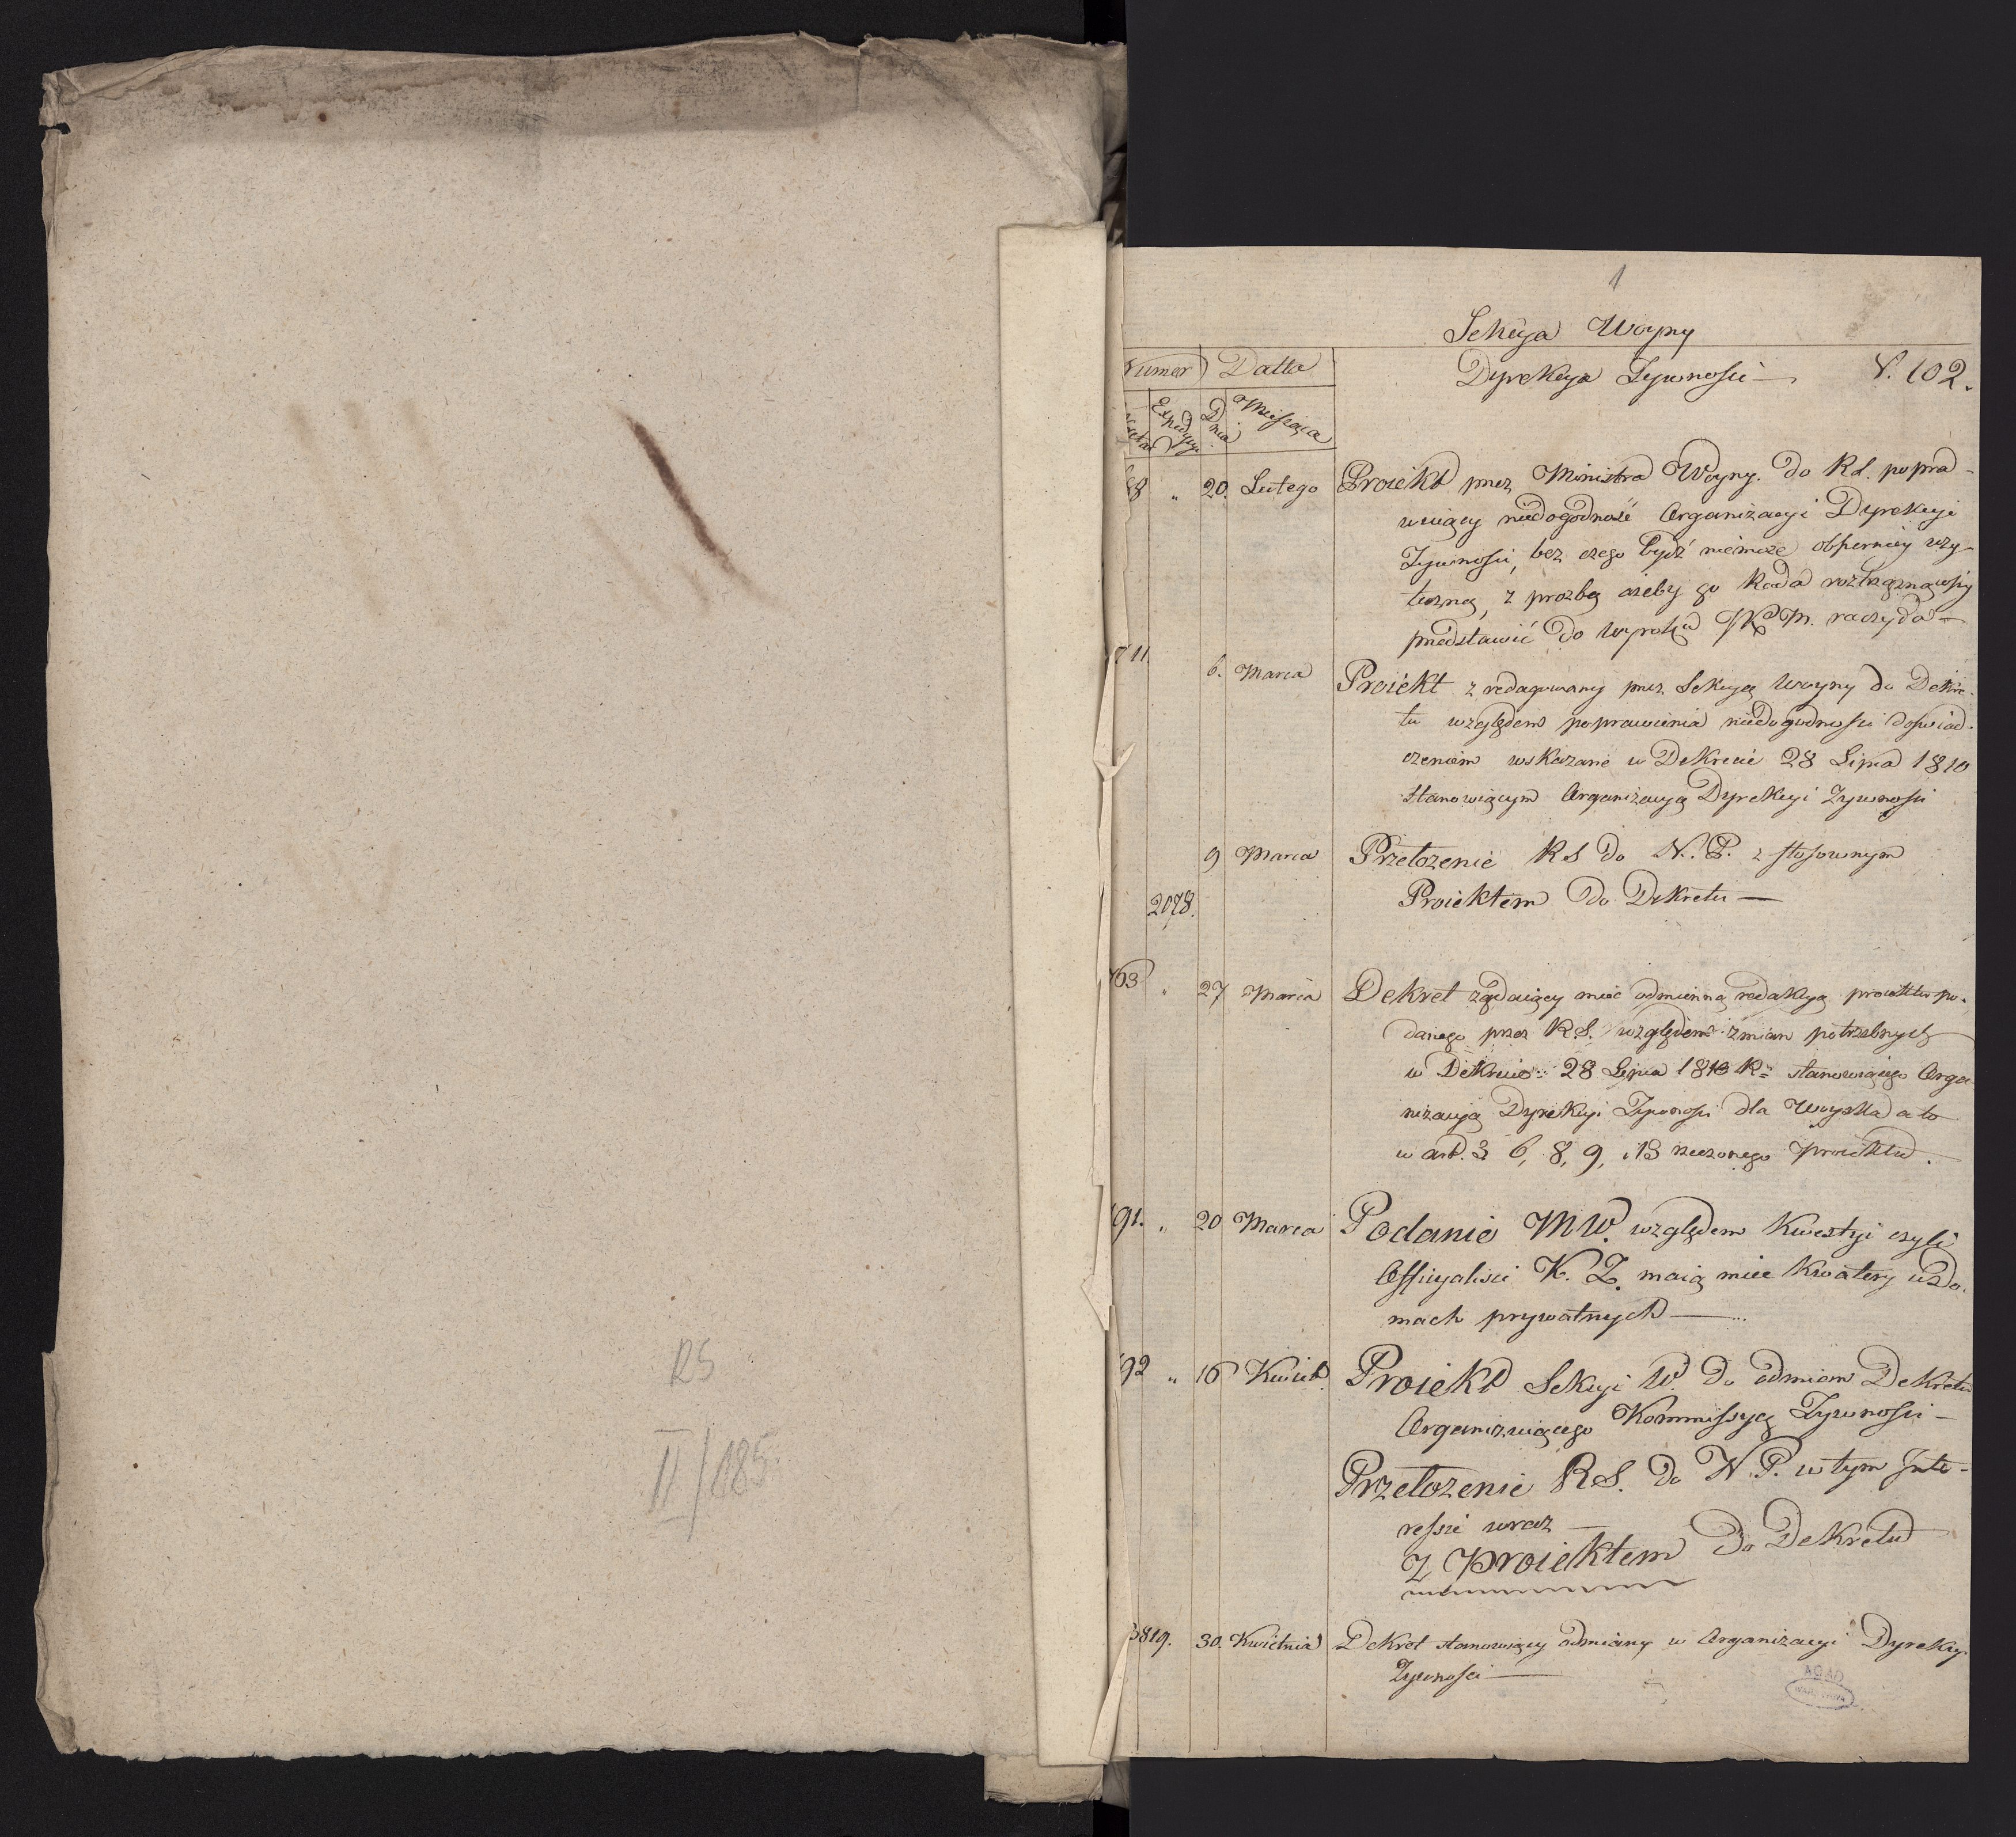 RS
II/185
1
Sekcya Woyny
Numer Datta
Dyrekcya Zywnosci — N. 102.
Expedycyi Dnia Miesiąca
68 „ 20. Lutego Proiekt przez Ministra Woyny do RS. popra-
wuiący niedogodność Organizacyi Dyrekcyi
Zywnosci, bez czego bydź niemoże obszerniey uży-
teczną, z prozbą ażeby go Rada roztrząsnąwszy
przedstawić do wyroku JKM. raczyła —
711. 6. Marca Proiekt zredagowany przez Sekcyą Woyny do Dekre-
tu względem poprawienia niedogodnosci doswiad-
czeniem wskazane w Dekrecie 28 Lipca 1810
stanowiącym Organizacyą Dyrekcyi Zywnosci
9 Marca Przełozenie RS do N. P. z stosownym
2078. Proiektem do Dekretu —
763 „ 27 Marca Dekret ządaiący mieć odmienną redakcyą proiektu po-
danego przez R.S. względem zmian potrzebnych
w Dekrecie 28 Lipca 1810 R. stanowiącego Orga-
nizacyą Dyrekcyi Zywnosci dla Woyska a to
w art. 3 6, 8, 9, i 13 rzeczonego proiektu.
791. „ 20 Marca Podanie MW. względem kwestyi czyli
Officyalisci K. Z. maią mieć kwatery w do-
mach prywatnych —
792 „ 16 Kwiet. Proiekt Sekcyi W. do odmian Dekretu
Organizuiącego Kommissyą Zywnosci —
Przełozenie RS. do N. P. w tym Inte-
ressie wraz —
z Proiektem do Dekretu
3819. 30. Kwietnia Dekret stanowiący odmiany w Organizacyi Dyrekcyi
Zywnosci —
AGAD
WARSZAWA